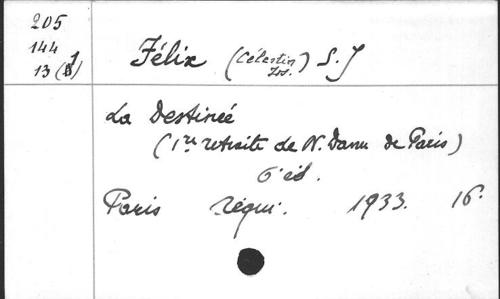 205
144
13 (B) 1
Félix (Célestin Jos.) S.J
La Destineé
(1re retraite de N. Dame de Paris)
6 éd.
Paris Téqui. 1933. 16.